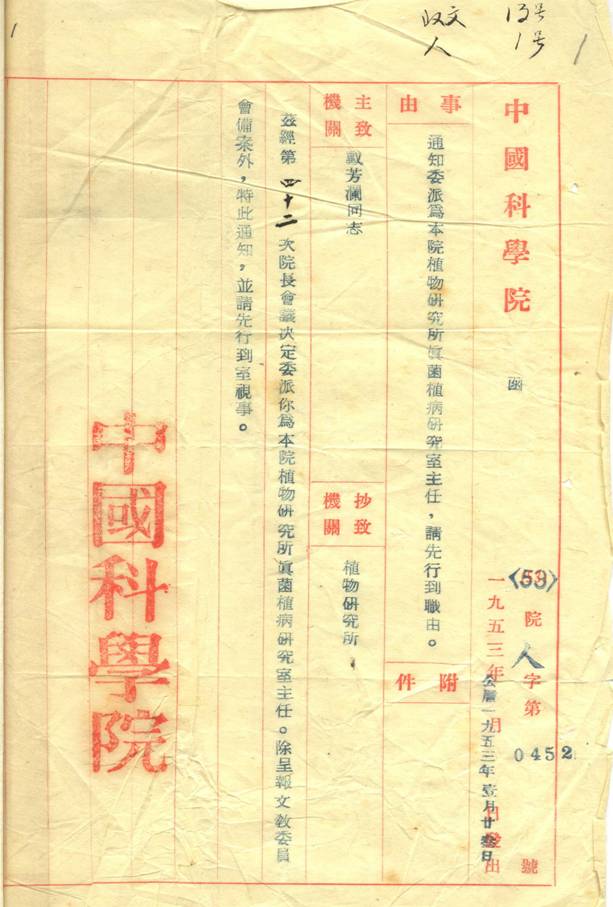 收文 13号
人 1号
中國科學院
函
〈53〉院人字第0452號
一九五三年 月 日發出
公曆一九五三年壹月廿叁日
事由
通知委派爲本院植物研究所真菌植病研究室主任，請先行到職由。
附件
主致機關
戴芳瀾同志
抄致機關
植物研究所
茲經第四十二次院長會議決定委派你爲本院植物研究所真菌植病研究室主任。除呈報文教委員
會備案外，特此通知，並請先行到室視事。
中國科學院